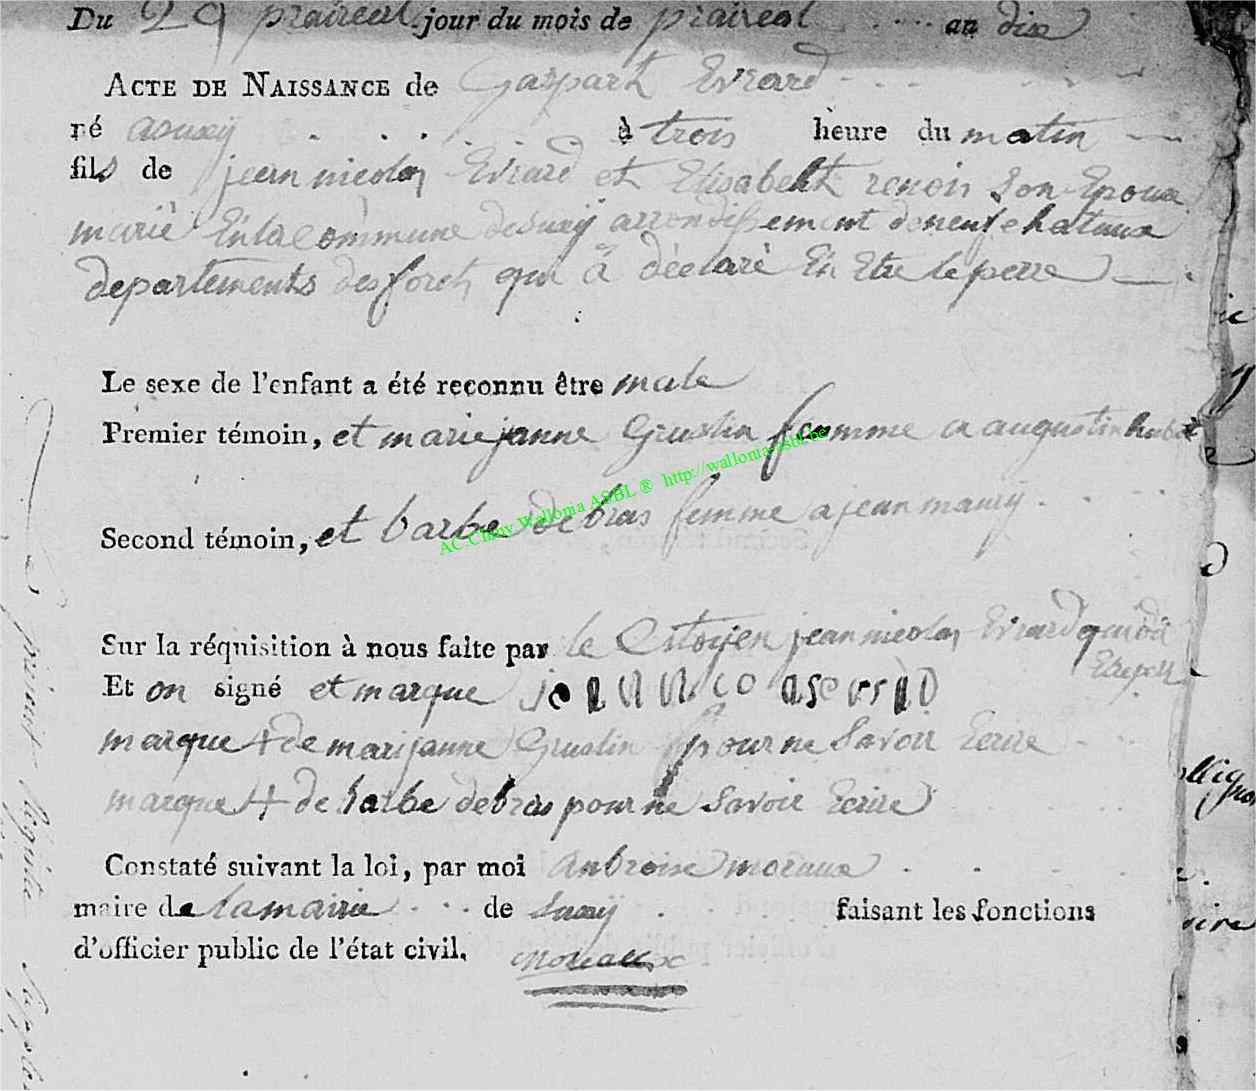 Du 29 praireal jour du mois de praireal an dix
ACTE DE NAISSANCE de Gaspart Evrard
né asuxÿ à trois heure du matin
fils de jean nicolas Evrard et Elisabeht renoir son Epouse
marié En la Commune de suxÿ arrondissement de neufchataux
departements des foret qui à déclaré En Etre le perre
Le sexe de l'enfant a été reconnu être male
Premier témoin, et marie janne Gruslin femme a augustin hubert
Second témoin, et barbe debras femme a jean mauij
AC.Chiny Wallonia ASBL ® http://wallonia-asbl.be
Sur la réquisition à nous faite par le Citoijen jean nicolas Evrard qui
Et on signé et marque
marque + de mari janne Gruslin pour ne Savoir Ecrire
marque + de barbe debras pour ne Savoir Ecrire
Constaté suivant la loi, par moi anbroise moraux
maire de la mairie de suxij faisant les fonctions
d'officier public de l'état civil. moraux